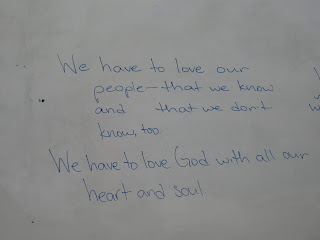 We have to love our
people-that we know
and that we don't
know, too.
We have to love God with all our
heart and soul